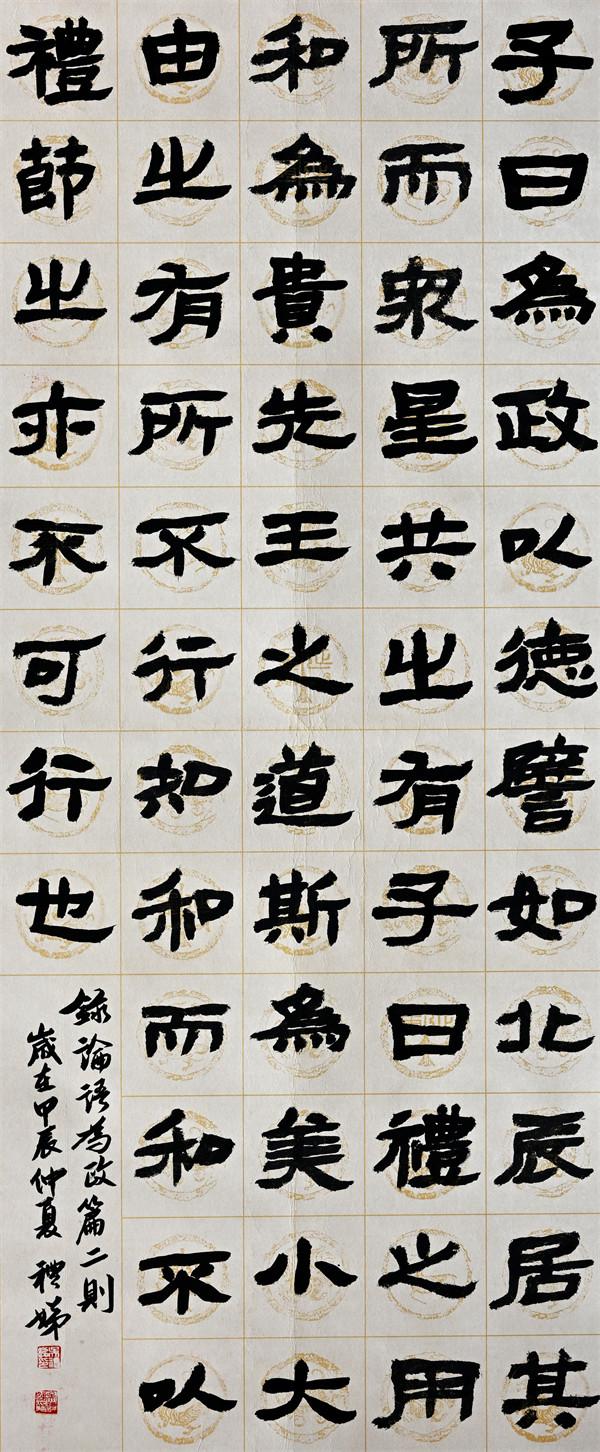 子曰為政以德譬如北辰居其
所而眾星共之有子曰禮之用
和為貴先王之道斯為美小大
由之有所不行知和而和不以
禮節之亦不可行也
錄論語為政篇二則
歲在甲辰仲夏 禮娣